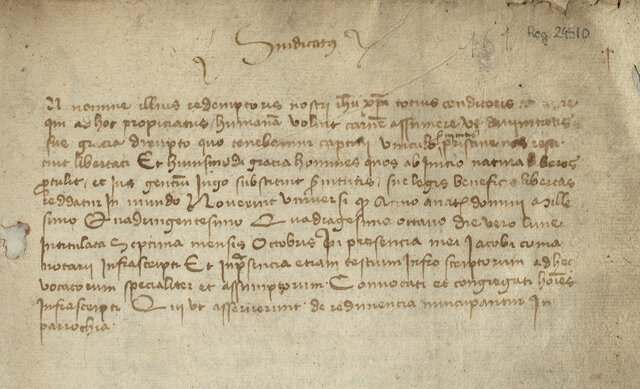 Reg. 2431D
Sindicatus
N nomine illius redemptoris nostri ihu xpi tocius conditoris
qui ad hoc propiciatus humanam voluit carnem assumere ut divinitatis
sue gracia dirupto quo tenebamur captivi vinculo servitutis pristine nos resti
tuit libertati Et huiusmodi gracia homines quos ab inicio natura liberos
protulit, et ius gentium iugo substituit servitutis, sue legis beneficio libertas
reddatur in mundo Noverint universi q Anno anat domini Mille
simo Quadringentesimo Quadragesimo octavo die vero lune
intitulata septima mensis Octobris In presencia mei Jacobi coma
notarii infrascripti Et in presencia etiam testium infrascriptorum ad hec
vocatorum specialiter et assumptorum Convocati et congregati hoies
infrascripti Qui ut asseruerunt de redimencia nuncupantur In
parrochia